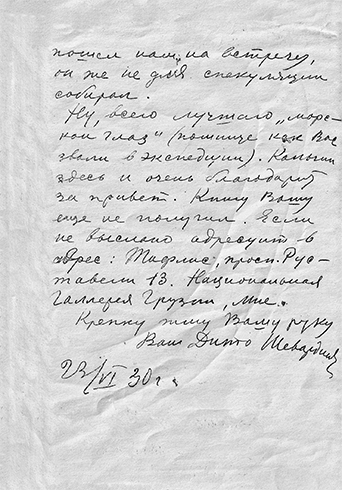 пошел нам на встречу,
он же не для спекуляции
собирал.
Ну, всего лучшаго „мор-
ской глаз" (помните как Вас
звали в экспедиции). Капыш
здесь и очень благодарит
за привет. Книгу Вашу
еще не получил. Если
не выслано адресуйте в
адрес: Тифлис, просп. Рус-
тавели 13. Национальная
Галлерея Грузии, мне.
Крепку жму Вашу руку
Ваш Дито Шевардна
23/VI 30 г.